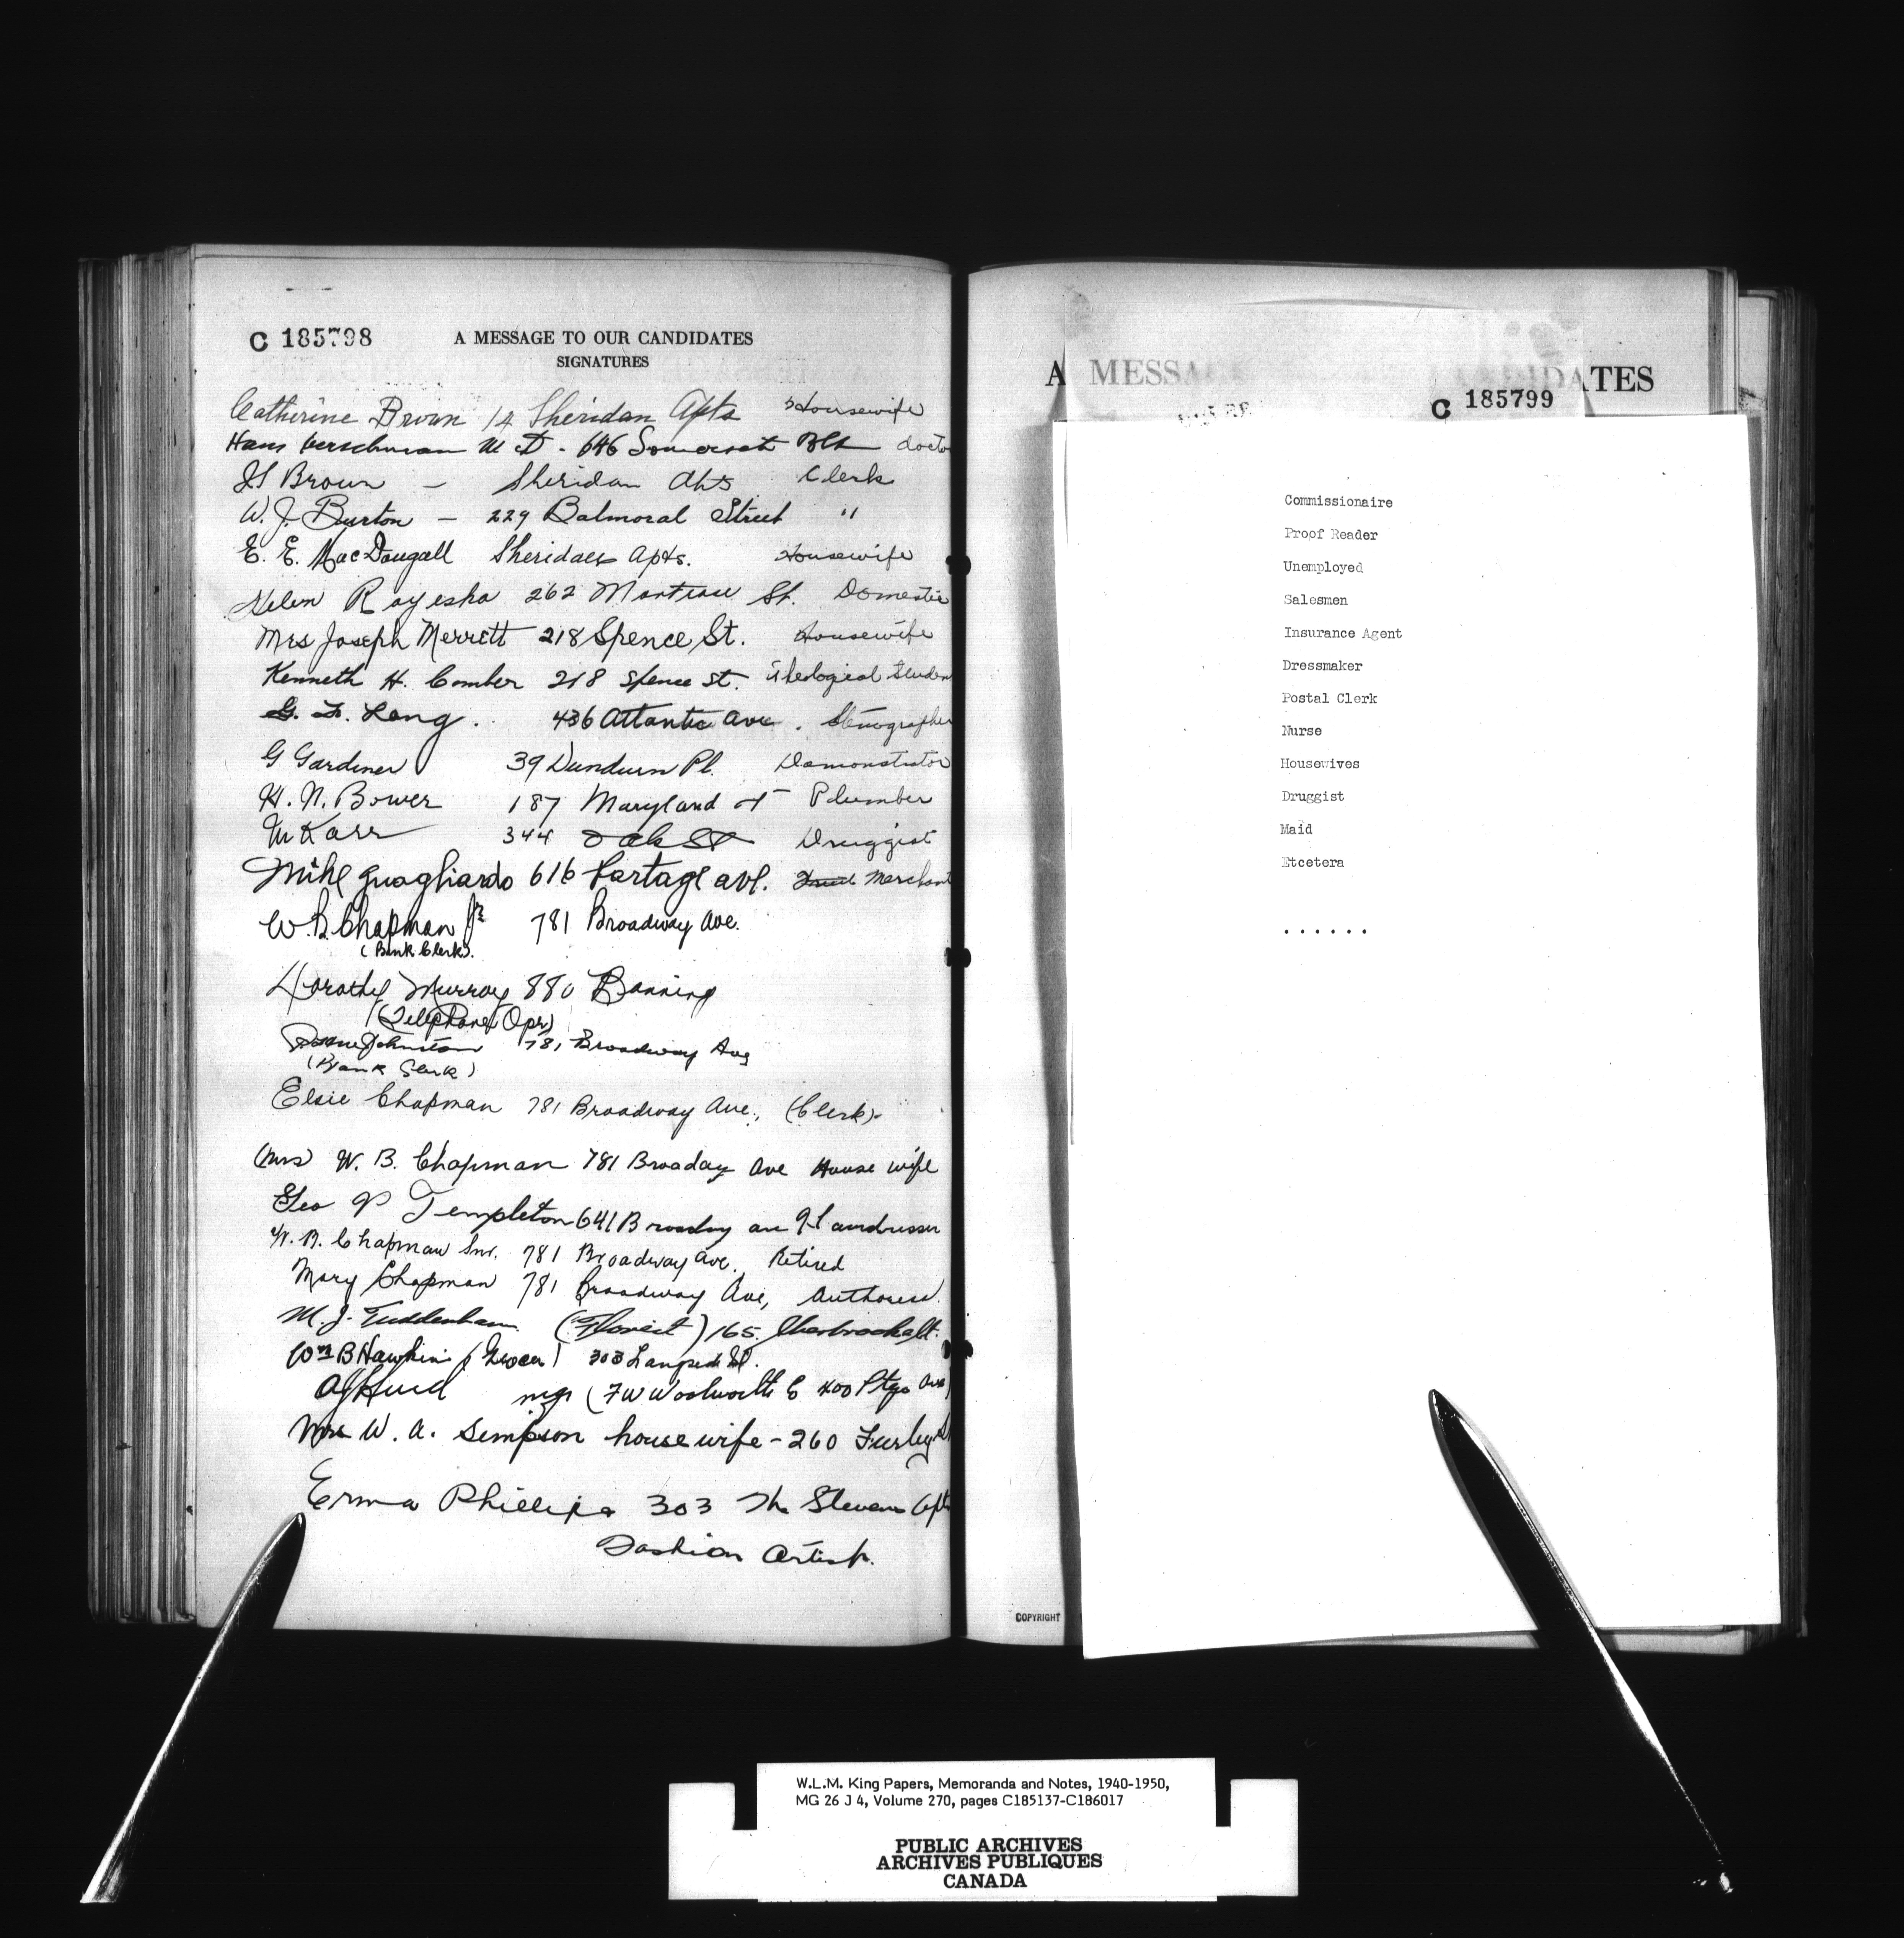 C 185798
A MESSAGE TO OUR CANDIDATES
SIGNATURES
Catherine Brown 14 Sheridan Apts Housewife
Hans M D - 646 Somerset Blk docto
Brown — Sheridan Apts Clerk
W. J. Burton — 229 Balmoral Street "
E. E. MacDougall Sheridan Apts. Housewife
Helen 262 St. Domestic
Mrs Joseph Merrett 218 Spence St. Housewife
Kenneth H. Comber 218 Spence St. Theological Studen
Lang. 436 Atlantic Ave. Stenographer
G Gardiner 39 Dundurn Pl. Demonstrator
H. N. Bower 187 Maryland St Plumber
M Karr 344 Oak St Druggist
Mike Guagliardo 616 Portage ave. Merchant
W. B. Chapman Jr 781 Broadway Ave.
(Bank Clerk).
Dorothy Murray 880 Banning
(Telephone Opr)
Johnston 781 Broadway Ave
(Bank Clerk)
Elsie Chapman 781 Broadway Ave., (Clerk).
(Mrs) W. B. Chapman 781 Broaday Ave House wife
Geo P Templeton 641 Broadway ave
W. B. Chapman Snr. 781 Broadway Ave. Retired
Mary Chapman 781 Broadway Ave, Authoress.
M. J. Tuddenham (Florist) 165
Wm B Hawkins (Grocer) 303 Langside St.
mgr (F W Woolworth Co 400 Ptge Ave)
Mrs W. A. Simpson housewife - 260
Erma Phillips 303 The Stevens Apts
Fashion Artist.
A MESSAGE CANDIDATES
C 185799
Commissionaire
Proof Reader
Unemployed
Salesmen
Insurance Agent
Dressmaker
Postal Clerk
Nurse
Housewives
Druggist
Maid
Etcetera
......
COPYRIGHT
W.L.M. King Papers, Memoranda and Notes, 1940-1950,
MG 26 J 4, Volume 270, pages C185137-C186017
PUBLIC ARCHIVES
ARCHIVES PUBLIQUES
CANADA